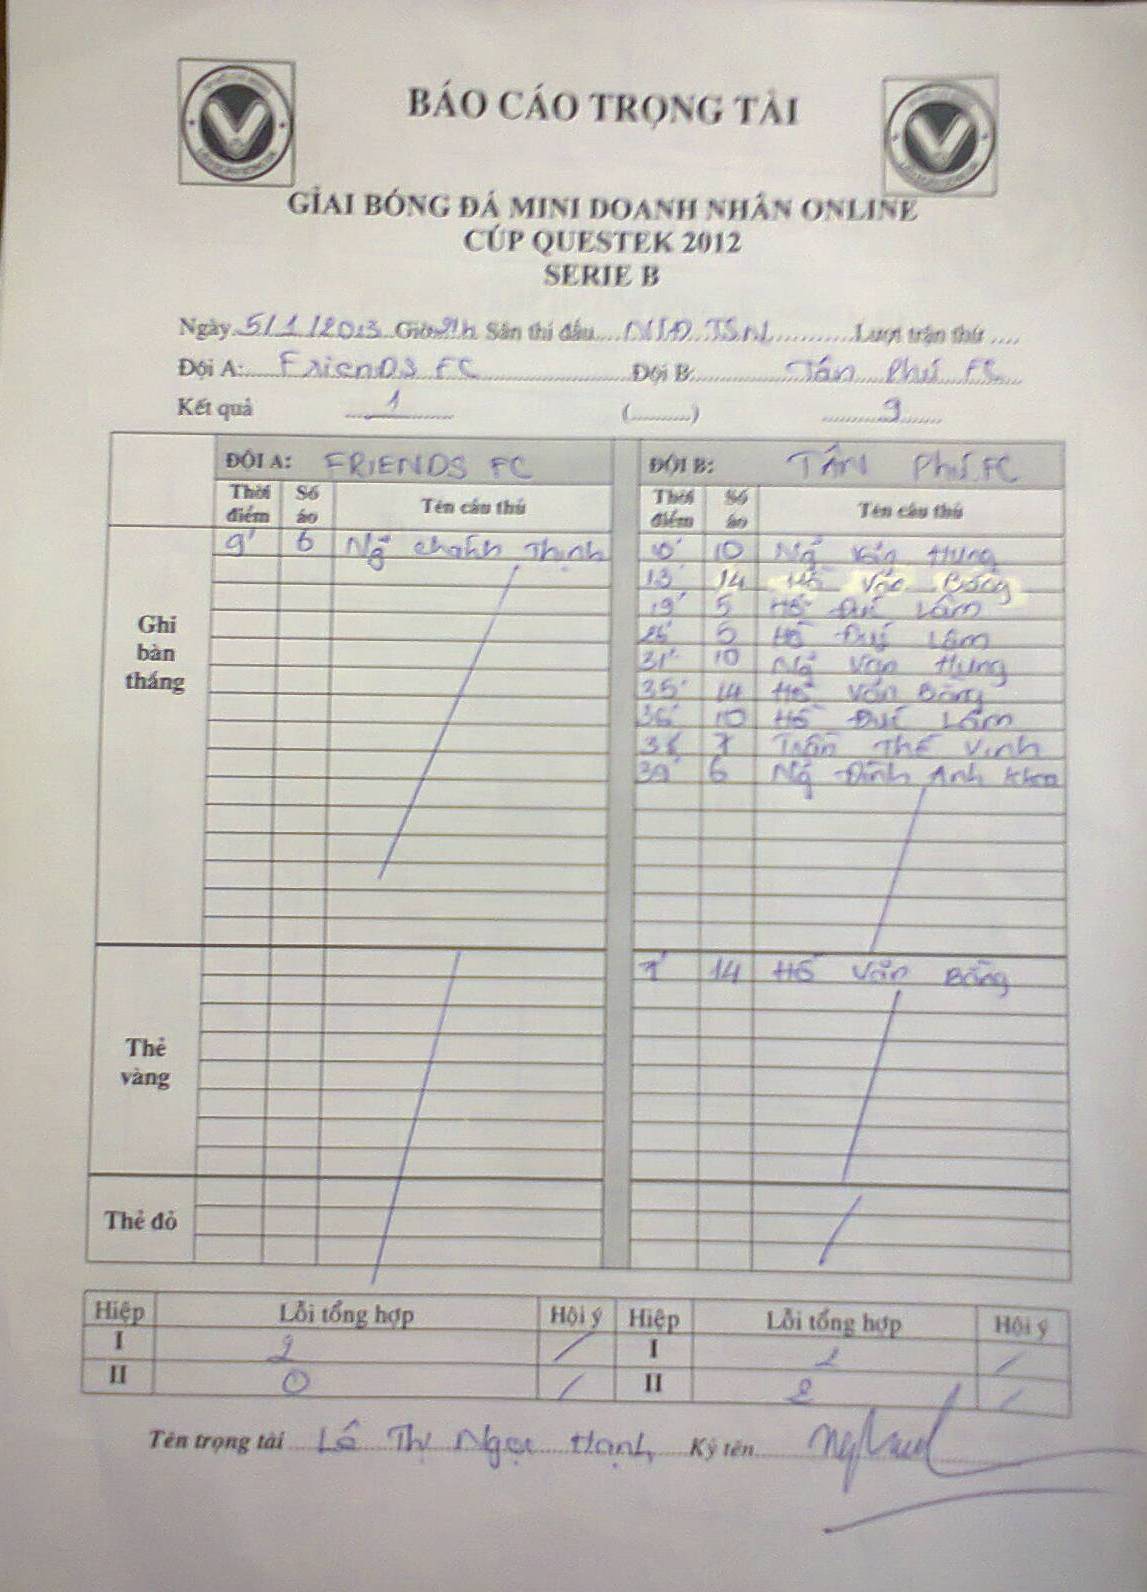 BÁO CÁO TRỌNG TÀI
GIẢI BÓNG ĐÁ MINI DOANH NHÂN ONLINE
CÚP QUESTEK 2012
SERIE B
Ngày 5/1/2013 Giờ Sân thi đấu NTĐ. TSN Lượt trận thứ ....
Đội A: Friends FC Đội B: Tân Phú FC
Kết quả 1 (..........) 9
ĐỘI A: FRIENDS FC ĐỘI B: TÂN PHÚ FC
Thời điểm Số áo Tên cầu thủ Thời điểm Số áo Tên cầu thủ
Ghi bàn thắng
9' 6 Ng~ chánh Thịnh 10' 10 Ng~ Văn Hưng
13' 14 Hồ Văn Bằng
19' 5 Hồ Đức Lâm
5 Hồ Đức Lâm
31' 10 Ng~ Văn Hưng
35' 14 Hồ Văn Bằng
36' 10 Hồ Đức Lâm
7 Trần Thế Vinh
39' 6 Ng~ Đình Anh Khoa
Thẻ vàng
7' 14 Hồ Văn Bằng
Thẻ đỏ
Hiệp Lỗi tổng hợp Hội ý Hiệp Lỗi tổng hợp Hội ý
I 2 / I /
II 0 / II 2 /
Tên trọng tài Lê Thị Ngọc Hạnh Ký tên